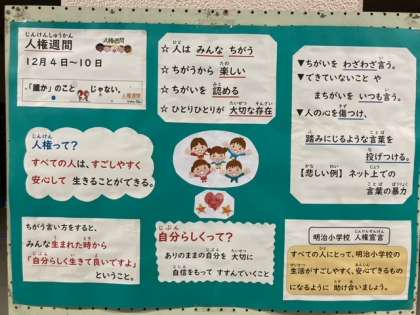 じんけんしゅうかん
人権週間
12月4日～10日
「誰か」のこと じゃない。
人権週間
☆人は みんな ちがう
☆ちがうから 楽しい
☆ちがいを 認める
☆ひとりひとりが 大切な存在
▼ちがいを わざわざ言う。
▼できていないこと や
まちがいを いつも言う。
▼人の心を傷つけ、
踏みにじるような言葉を
投げつける。
【悲しい例】ネット上での
言葉の暴力
じんけん
人権って?
すべての人は、すごしやすく
安心して 生きることができる。
ちがう言い方をすると、
みんな生まれた時から
「自分らしく生きて良いですよ」
ということ。
じぶん
自分らしくって?
ありのままの自分を 大切に
自信をもって すすんでいくこと
明治小学校 人権宣言
すべての人にとって、明治小学校の
生活がすごしやすく、安心できるものに
なるように 助け合いましょう。